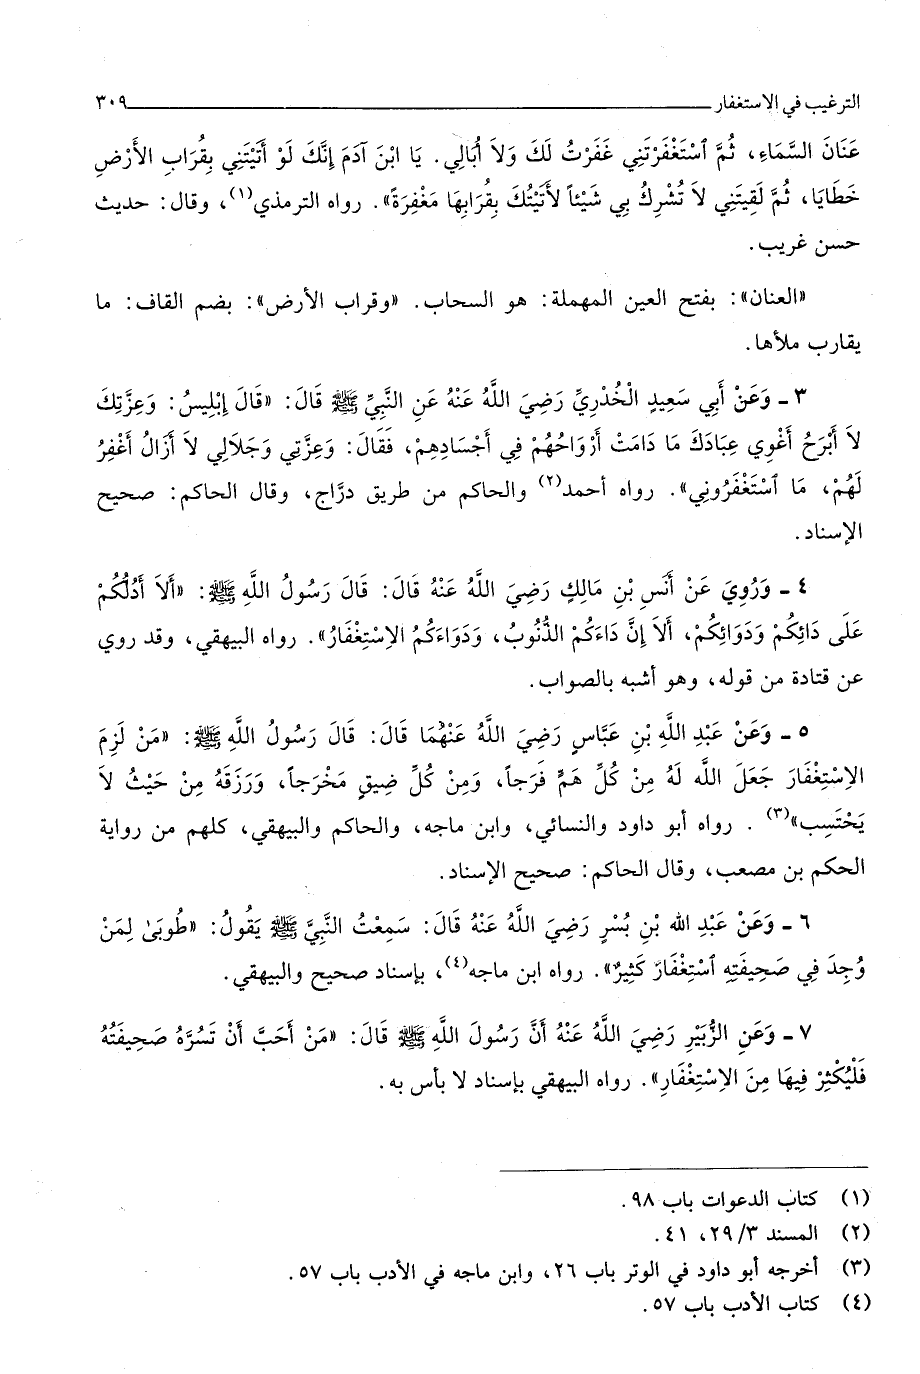 الترغيب في الاستغفار ٣٠٩
عَنَانَ السَّمَاءِ، ثُمَّ ٱسْتَغْفَرْتَنِي غَفَرْتُ لَكَ وَلاَ أُبَالِي. يَا ابْنَ آدَمَ إِنَّكَ لَوْ أَتَيْتَنِي بِقُرَابِ الأَرْضِ
خَطَايَا، ثُمَّ لَقِيتَنِي لاَ تُشْرِكُ بِي شَيْئاً لأَتَيْتُكَ بِقُرَابِهَا مَغْفِرَةً». رواه الترمذي(١)، وقال: حديث
حسن غريب.
«العنان»: بفتح العين المهملة: هو السحاب. «وقراب الأرض»: بضم القاف: ما
يقارب ملأها.
٣ ـ وَعَنْ أَبِي سَعِيدٍ الْخُدْرِيِّ رَضِيَ اللَّهُ عَنْهُ عَنِ النَّبِيِّ ﷺ قَالَ: «قَالَ إِبْلِيسُ: وَعِزَّتِكَ
لاَ أَبْرَحُ أَغْوِي عِبَادَكَ مَا دَامَتْ أَرْوَاحُهُمْ فِي أَجْسَادِهِمْ، فَقَالَ: وَعِزَّتِي وَجَلاَلِي لاَ أَزَالُ أَغْفِرُ
لَهُمْ، مَا ٱسْتَغْفَرُونِي». رواه أحمد(٢) والحاكم من طريق درَّاج، وقال الحاكم: صحيح
الإسناد.
٤ ـ وَرُوِيَ عَنْ أَنَسِ بْنِ مَالِكٍ رَضِيَ اللَّهُ عَنْهُ قَالَ: قَالَ رَسُولُ اللَّهِ ﷺ: «أَلاَ أَدُلُّكُمْ
عَلَى دَائِكُمْ وَدَوَائِكُمْ، أَلاَ إِنَّ دَاءَكُمْ الذُّنُوبُ، وَدَوَاءَكُمُ الاِسْتِغْفَارُ». رواه البيهقي، وقد روي
عن قتادة من قوله، وهو أشبه بالصواب.
٥ ـ وَعَنْ عَبْدِ اللَّهِ بْنِ عَبَّاسٍ رَضِيَ اللَّهُ عَنْهُمَا قَالَ: قَالَ رَسُولُ اللَّهِ ﷺ: «مَنْ لَزِمَ
الاِسْتِغْفَارَ جَعَلَ اللَّه لَهُ مِنْ كُلِّ هَمٍّ فَرَجاً، وَمِنْ كُلِّ ضِيقٍ مَخْرَجاً، وَرَزَقَهُ مِنْ حَيْثُ لاَ
يَحْتَسِب»(٣). رواه أبو داود والنسائي، وابن ماجه، والحاكم والبيهقي، كلهم من رواية
الحكم بن مصعب، وقال الحاكم: صحيح الإسناد.
٦ ـ وَعَنْ عَبْدِ الله بْنِ بُسْرٍ رَضِيَ اللَّهُ عَنْهُ قَالَ: سَمِعْتُ النَّبِيَّ ﷺ يَقُولُ: «طُوبَىٰ لِمَنْ
وُجِدَ فِي صَحِيفَتِهِ ٱسْتِغْفَارٌ كَثِيرٌ». رواه ابن ماجه(٤)، بإسناد صحيح والبيهقي.
٧ ـ وَعَنِ الزُّبَيْرِ رَضِيَ اللَّهُ عَنْهُ أَنَّ رَسُولَ اللَّهِ ﷺ قَالَ: «مَنْ أَحَبَّ أَنْ تَسُرَّهُ صَحِيفَتُهُ
فَلْيُكْثِرْ فِيهَا مِنَ الاِسْتِغْفَارِ». رواه البيهقي بإسناد لا بأس به.
(١) كتاب الدعوات باب ٩٨.
(٢) المسند ٢٩/٣، ٤١.
(٣) أخرجه أبو داود في الوتر باب ٢٦، وابن ماجه في الأدب باب ٥٧.
(٤) كتاب الأدب باب ٥٧.